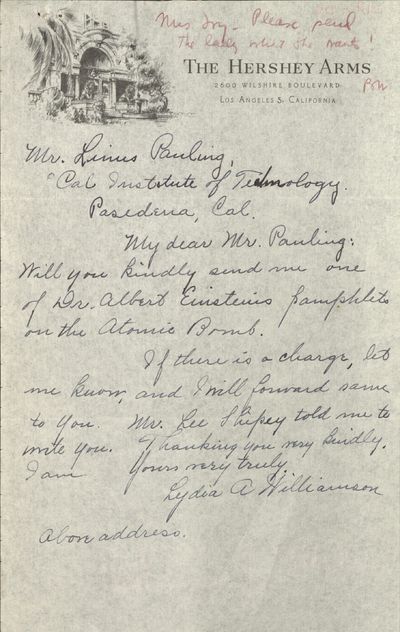 Mrs. Ivy - Please send
the lady what she wants!
The Hershey Arms
2600 Wilshire Boulevard
Los Angeles 5, California
Mr. Linus Pauling,
Cal Institute of Technology.
Pasedena, Cal.
My dear Mr. Pauling:
Will you kindly send me one
of Dr. Albert Einsteins pamphlets
on the Atomic Bomb.
If there is a charge, let
me know, and I will forward same
to you. Mr. Lee Shipey told me to
write you. Thanking you very kindly.
I am Yours very truly.
Lydia A Williamson
Above address.